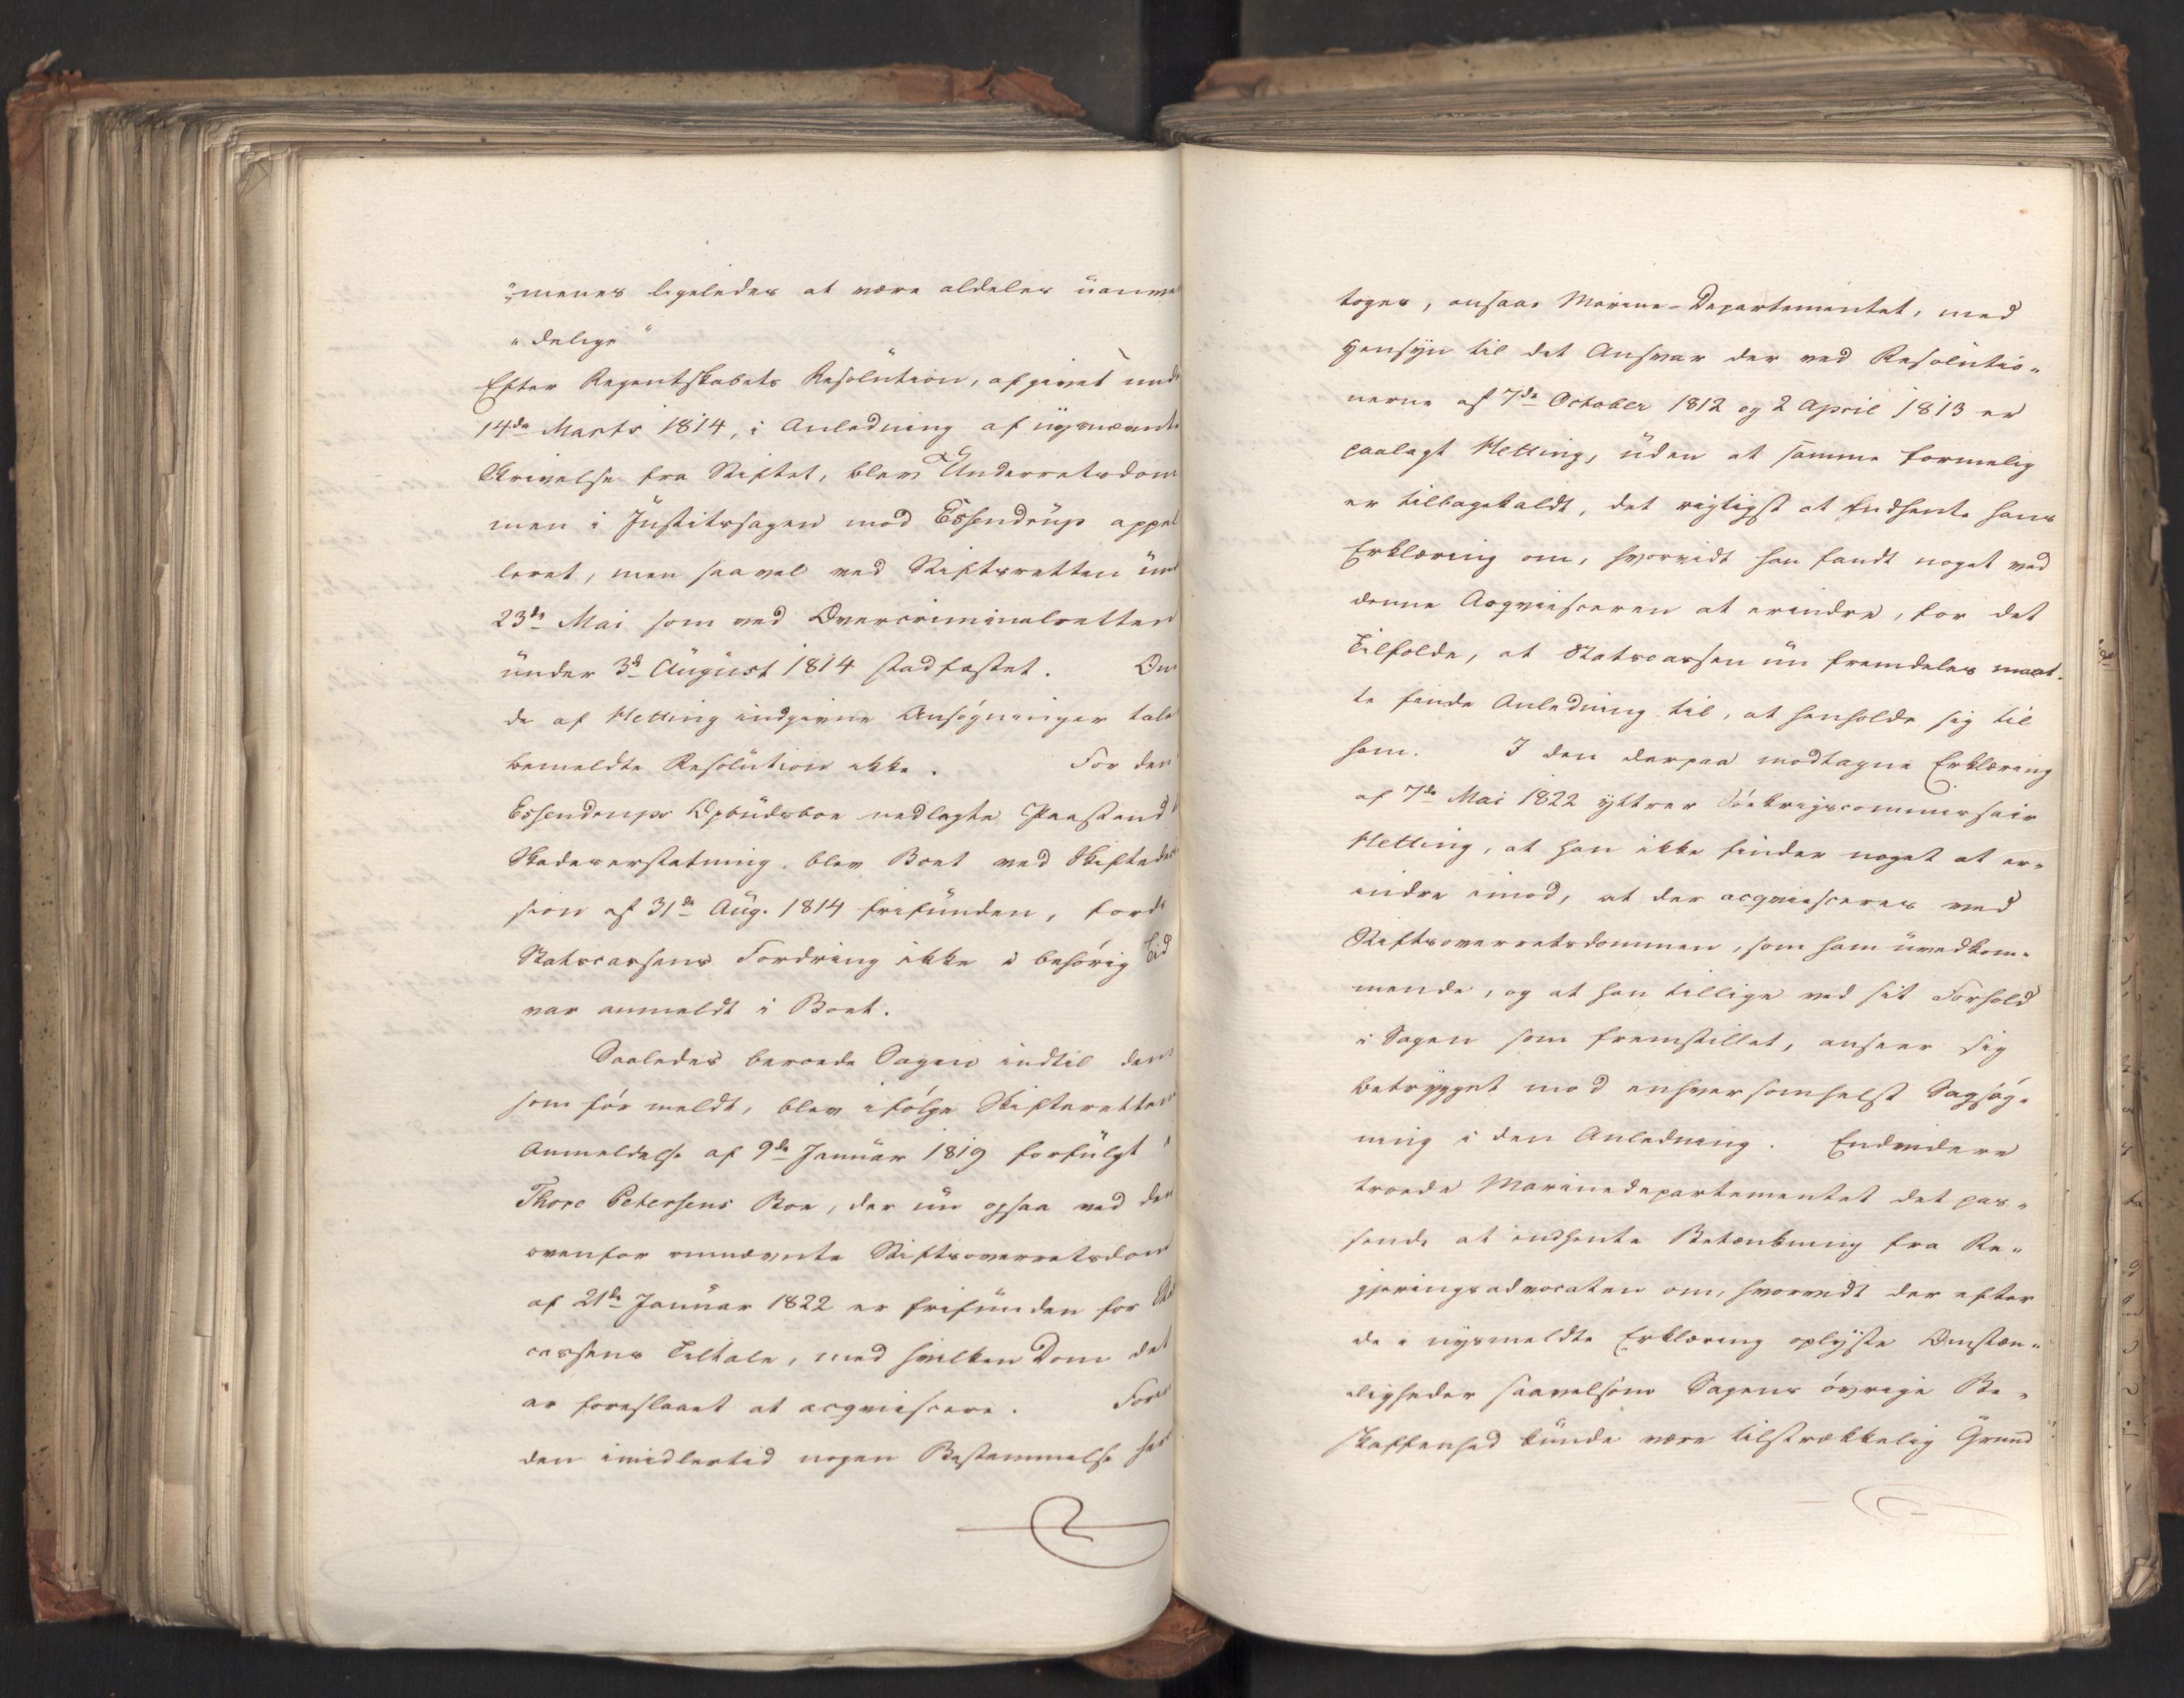 "menes ligeledes at være aldeles uanven
"delige"
Efter Regentskabets Resolution, afgivet unde
14de Marts 1814, i Anledning af nysnævnte
Skrivelse fra Stiftet, blev Underretsdom
men i Justitssagen mod Essendrup appel
leret, men saavel ved Stiftsretten und
23de Mai som ved Overcriminalretten
under 3de August 1814 stadfæstet. Om
de af Hetting indgivne Ansøgninger tale
bemeldte Resolution ikke. For den
Essendrups Opbudsboe nedlagte Paastand
Skadeserstatning, blev Boet ved Skiftedeci
sion af 31de Aug. 1814 frifunden, fordi
Statscassens Fordring ikke i behørig Tid
var anmeldt i Boet.
Saaledes beroede Sagen indtil den
som før meldt, blev ifølge Skifterettens
Anmeldelse af 9de Januar 1819 forfulgt i
Thore Petersens Boe, der nu ogsaa ved den
ovenfor omnævnte Stiftsoverretsdom
af 21de Januar 1822 er frifunden for Stat
cassens Tiltale, med hvilken Dom det
er foreslaaet at acqviescere. Foren
den imidlertid nogen Bestemmelse her
toges, ansaae Marine-Departementet, med
Hensyn til det Ansvar der ved Resolutio-
nerne af 7de October 1812 og 2 April 1813 er
paalagt Hetting, uden at samme formelig
er tilbagekaldt, det rigtigst at indhente hans
Erklæring om, hvorvidt han fandt noget ved
denne Acqviesceren at erindre, for det
Tilfælde, at Statscassen nu fremdeles maat-
te finde Anledning til, at henholde sig til
ham. I den derpaa modtagne Erklæring
af 7de Mai 1822 yttrer Søekrigscommissair
Hetting, at han ikke finder noget at er-
indre imod, at der acqviesceres ved
Stiftsoverretsdommen, som ham uvedkom-
mende, og at han tillige ved sit Forhold
i Sagen som fremstillet, anseer sig
betrygget mod enhversomhelst Sagsøg-
ning i den Anledning. Endvidere
troede Marinedepartementet det pas-
sende at indhente Betænkning fra Re-
gjeringsadvocaten om, hvorvidt der efter
de i nysmeldte Erklæring oplyste Omstæn-
digheder saavelsom Sagens øvrige Be-
skaffenhed kunde være tilstrækkelig Grund